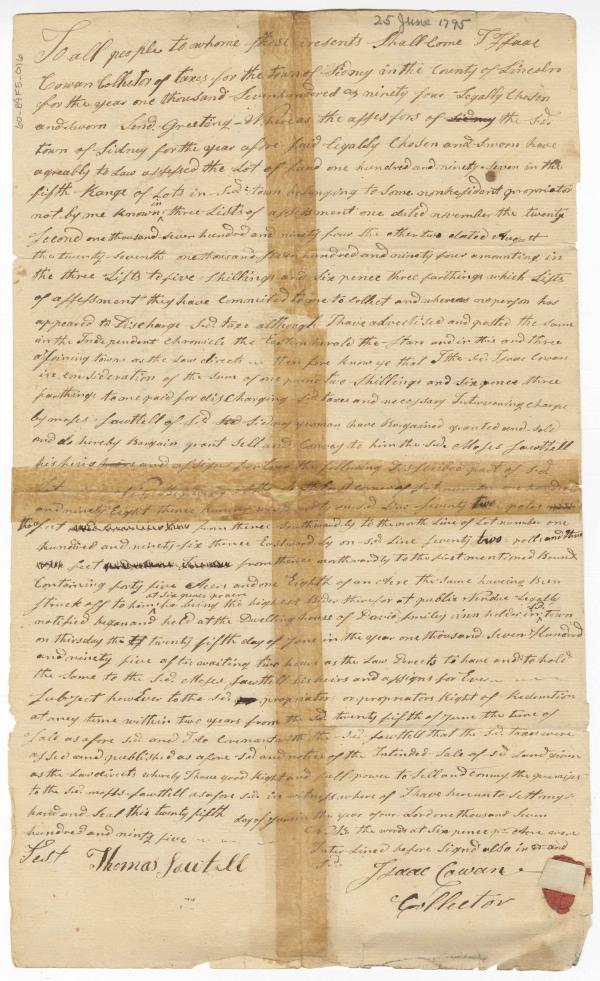 25 June 1795
60-E4F5-016
To all people to whome these presents Shall Come I Isaac
Cowan Collector of taxes for the town of Sidney in the County of Lincoln
for the year one thousand Seven hundred & ninety four Legally Chosen
and Sworn Send Greeting - Whereas the assessors of Sidney the Sd.
town of Sidney for the year afore Said legally Chosen and Sworn have
agreably to Law assessed the Lot of Land one hundred and ninety-Seven in the
fifth Range of Lots in Sd. town belonging to Some nonresident propriator
not by me known in three Lists of assessment one dated november the twenty
Second one thousand seven hundred and ninety four the other two dated August
the twenty-seventh one thousand seven hundred and ninety four amounting in
the three Lists to five Shillings and Six pence three farthings which Lists
of assessment they have committed to me to Collect and whereas no person has
appeared to Discharge Sd. taxe although I have advertised and posted the same
in the Independent Chronicle the Eastern herald the Starr and in this and three
ajoining towns as the Law directs therefore know ye that I the Sd. Isaac Cowan
in consideration of the sum of one pound two Shillings and six pence three
farthings to me paid for discharging Sd. taxes and necessary Intervening Charge
by moses Sawtell of Sd. Sidney yeoman have Bargained granted and Sold
and do hereby Bargain grant Sell and Convay to him the Sd. Moses Sawtell
his heirs and assigns forever the following Discribed part of Sd.
Lot
and ninety Eight thence on Sd. Line Seventy two poles
three feet from thence Southwardly to the north Line of Lot number one
hundred and ninety-six thence Eastward by on Sd. Line Seventy two poles and three
feet from thence northwardly to the first mentioned Bound
Containing forty five Acres and one Eighth of an Acre the same haveing Been
Struck off to him at six pence per acre he being the highest Bider therefor at public Vendue Legally
notified began and held at the Dwelling house of David Smiley inn holder in sd. town
on thirsday the twenty fifth day of June in the year one thousand Seven Hundred
and ninety five after waiting two hours as the Law Directs to have and to hold
the same to the Sd. Moses Sawtell his heirs and assigns for Ever
Subject however to the Sd. propriator or propriators Right of Redemtion
at aney time within two years from the Sd. twenty fifth of June the time of
Sale as afore Sd. and I do Covenant with the Sd. Sawtell that the Sd. taxes were
assesed and published as afore Sd. and notice of the Intended Sale of Sd. Land given
as the Law directs wherely I have good Right and full power to Sell and Convay the premises
to the Sd. moses Sawtell as afore Sd. in witness where of I have hereunto Sett my
hand and Seal this twenty fifth day of June in the year of our Lord one thousand Seven
hundred and ninty five
the words at Six pence pr. Acre were
Inter Lined before Signd also in and
Sd.
Test Thomas Sawtell
Isaac Cowan
Collector